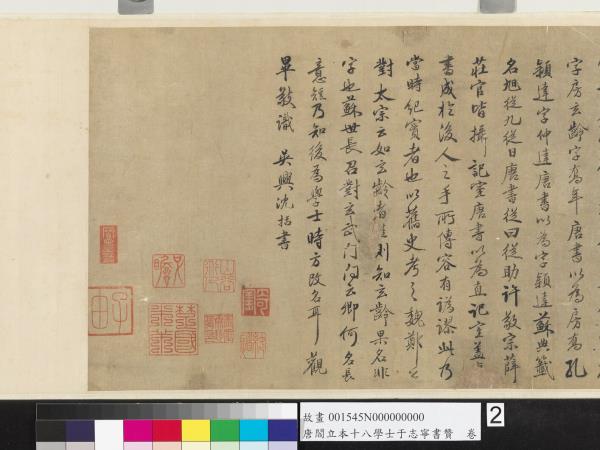 字房玄齡字喬年唐書以為房喬孔
穎達字仲達唐書以為字穎達蘇典籤
名旭從九從日唐書從日從助許敬宗薛
莊官皆攝記室唐書以為直記室蓋
書成於後人之手所傳容有譌謬此乃
當時紀實者也以舊史考之魏鄭公
對太宗云如玄齡者 則知玄齡果名非
字也蘇世長召對玄武門問云卿何名長
意短乃知後為學士時方改名耳觀
畢敬識 吳興沈括書
故畫 001545N000000000
唐閻立本十八學士于志寧書贊 卷
2